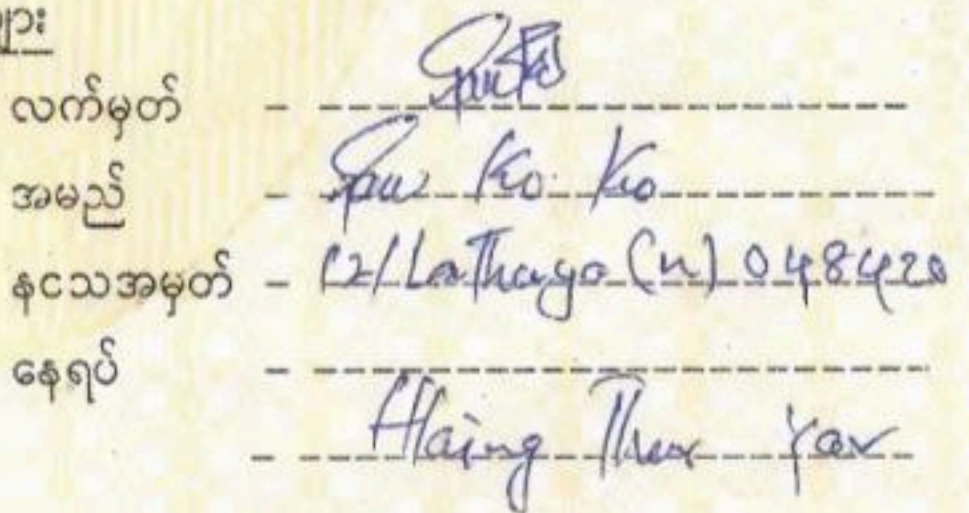 လက်မှတ် -
အမည် - Ko Ko
နငသအမှတ် - 12/LaThaya (N) 048420
နေရပ် -
- Hlaing Thar Yar